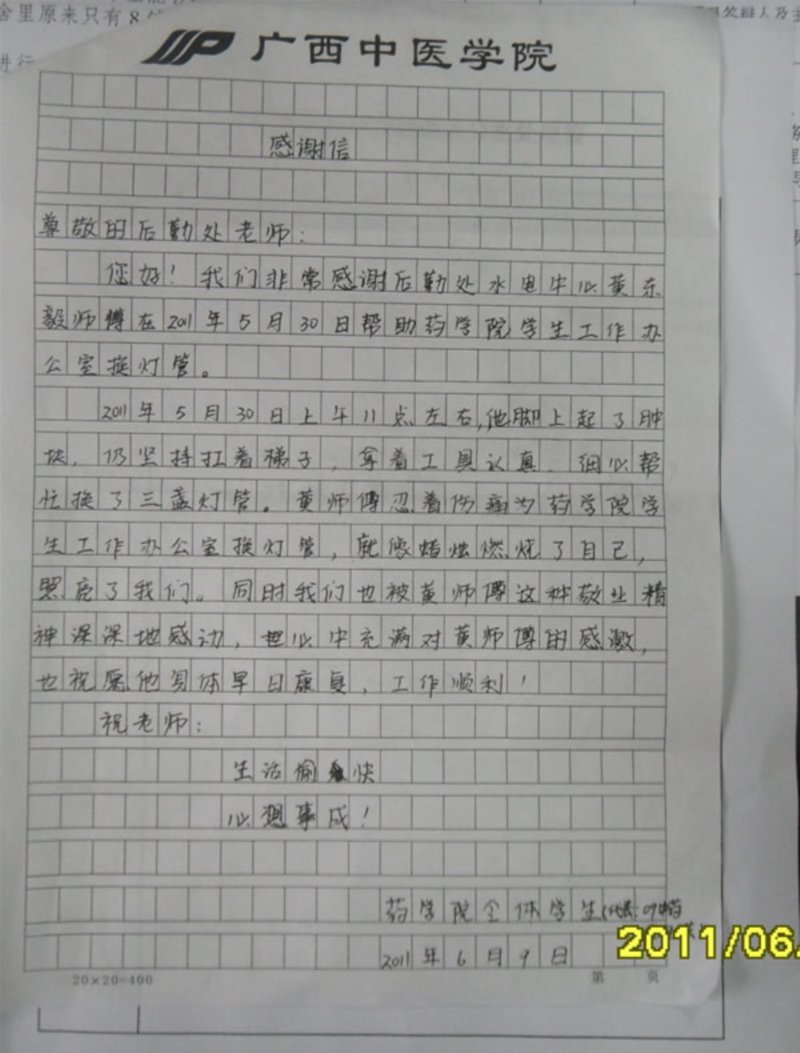 舍里原来只有8
进行
广西中医学院
感谢信
尊敬的后勤处老师：
您好！我们非常感谢后勤处水电中心黄东
毅师傅在2011年5月30日帮助药学院学生工作办
公室换灯管。
2011年5月30日上午11点左右,他脚上起了肿
块，仍坚持扛着梯子，拿着工具认真、细心帮
忙换了三盏灯管。黄师傅忍着伤痛为药学院学
生工作办公室换灯管，就像蜡烛燃烧了自己，
照亮了我们。同时我们也被黄师傅这种敬业精
神深深地感动，心中充满对黄师傅的感激，
也祝愿他身体早日康复，工作顺利！
祝老师：
生活愉快
心想事成！
药学院全体学生
2011年6月9日
2011/06
20×20=400
第 页